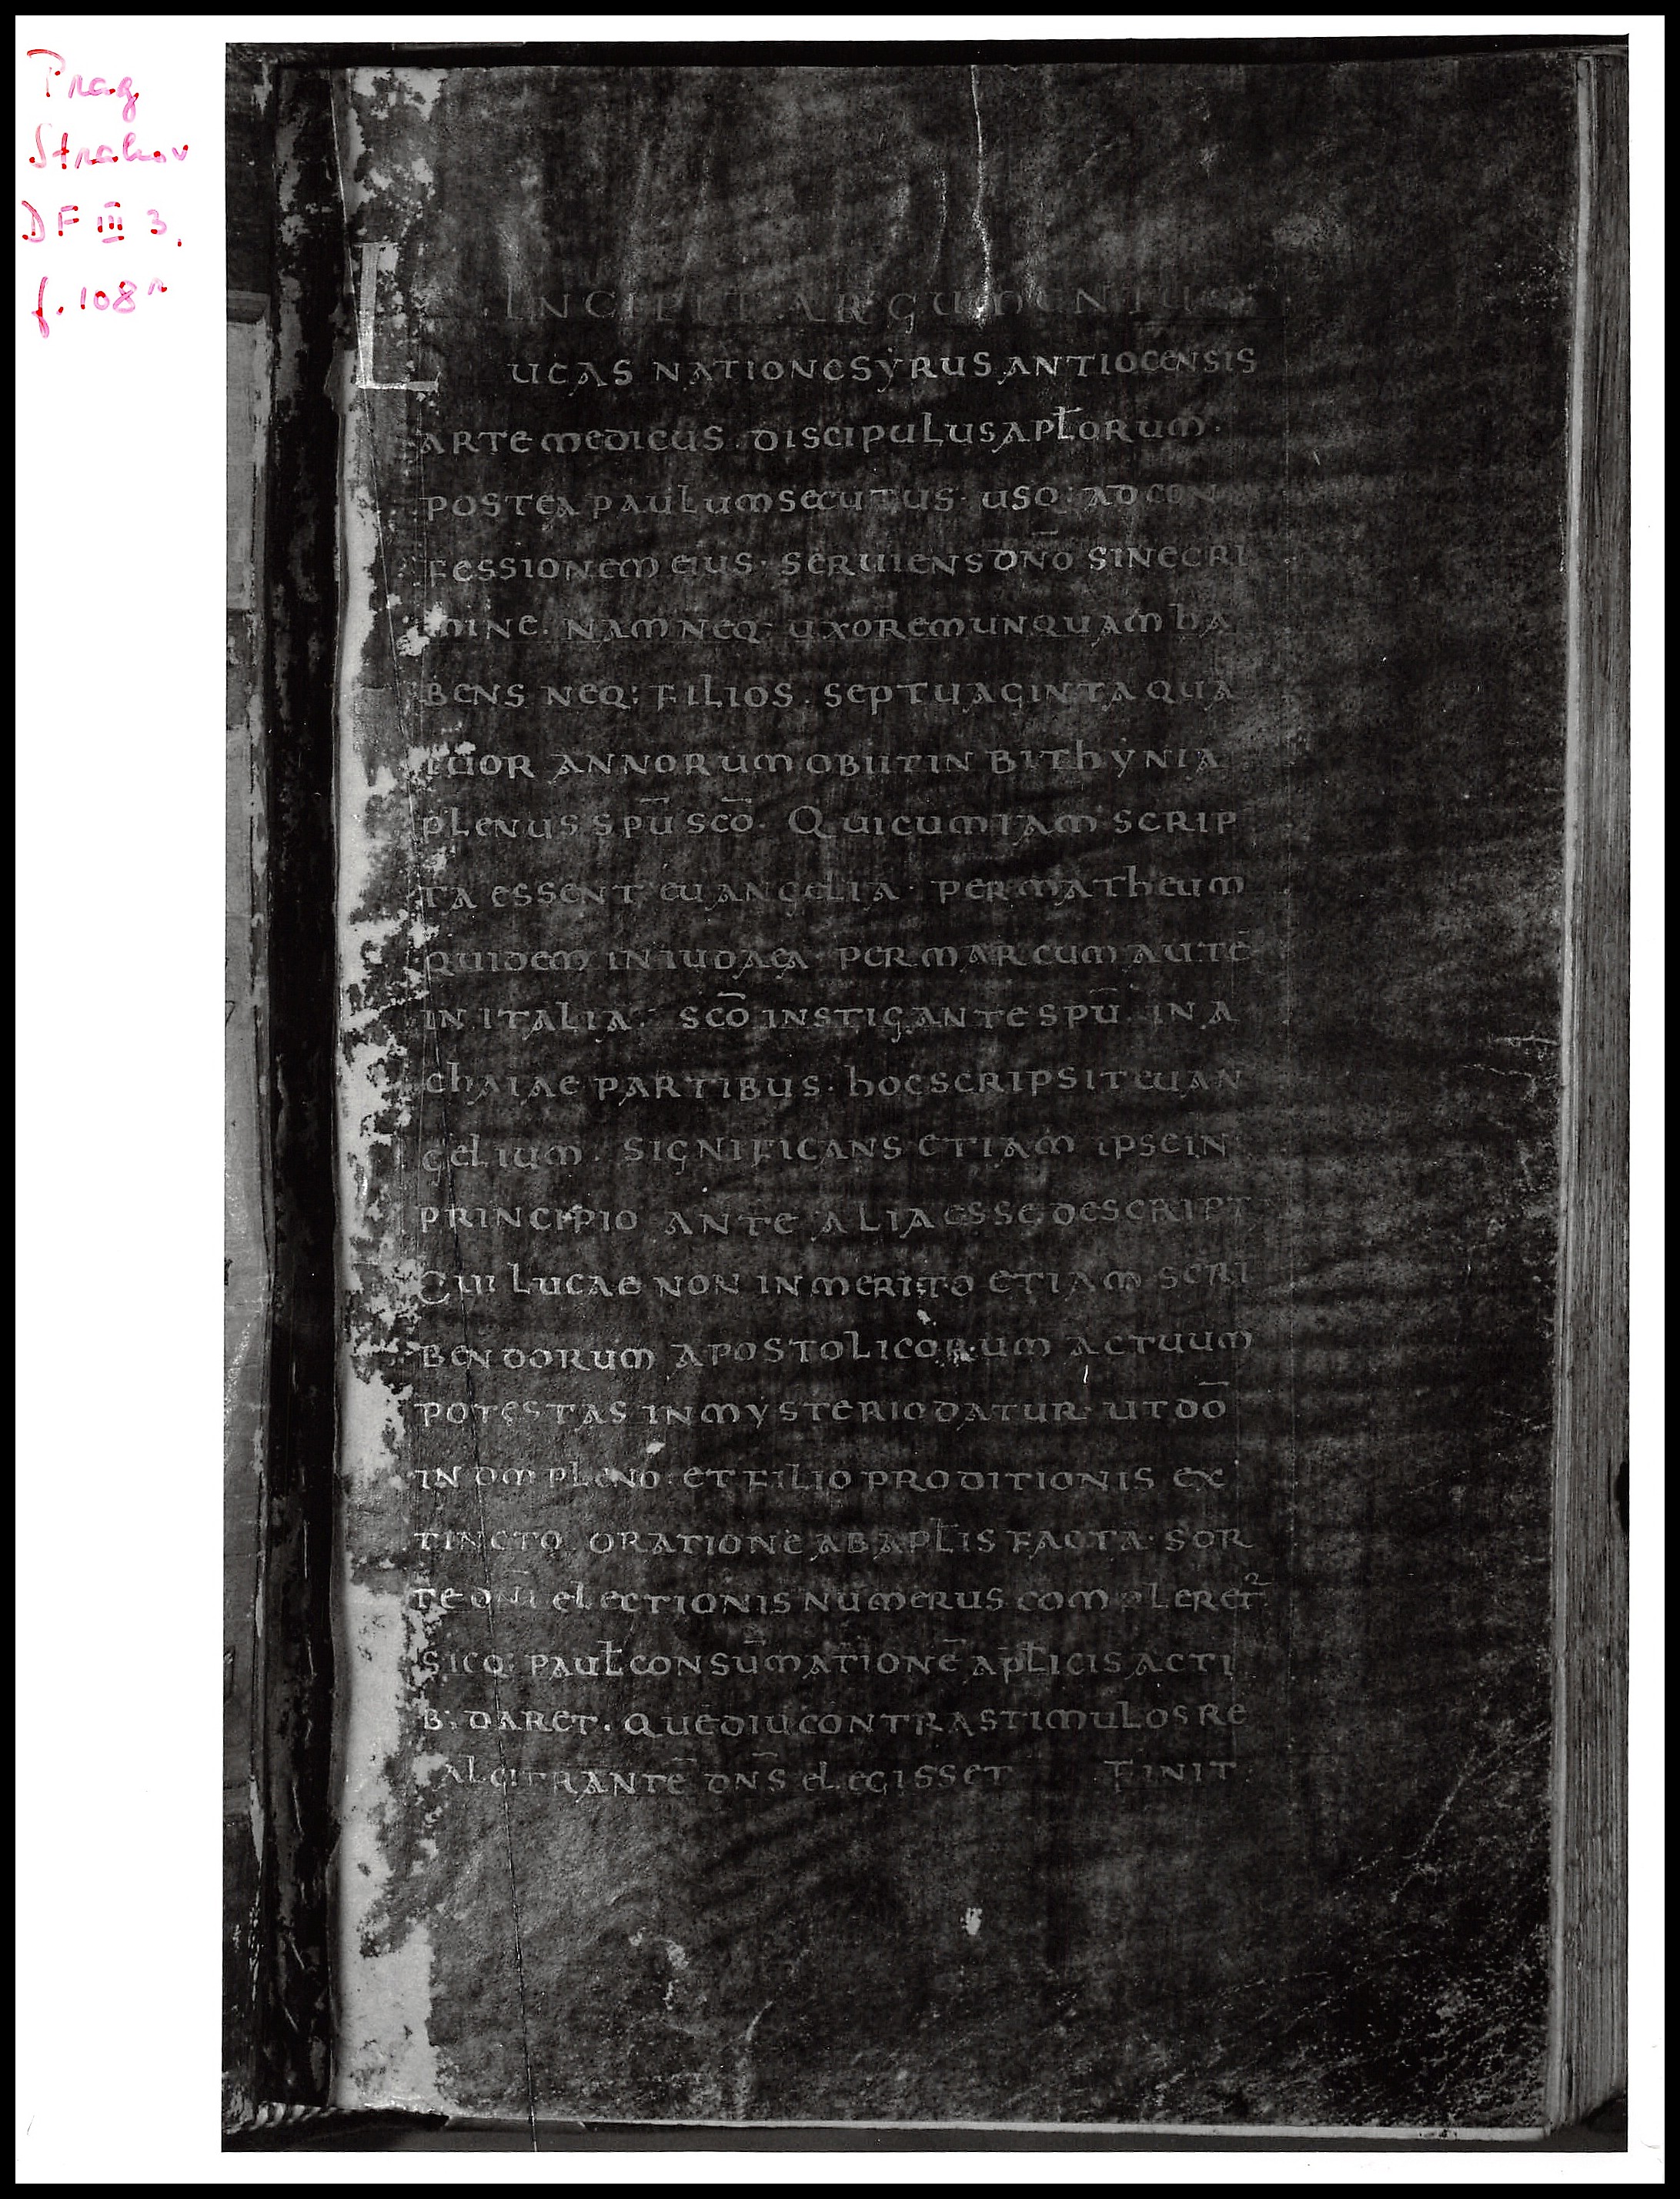 Prag
Strahov
DF III 3,
f. 108r
INCIPIT ARGUMENTU
LUCAS NATIONE SYRUS ANTIOCENSIS
ARTE MEDICUS. DISCIPULUS APŁORUM.
POSTEA PAULUM SECUTUS· USQ: AD CON
FESSIONEM EIUS· SERUIENS DN̄O SINE CRI
MINE. NAM NEQ· UXOREM UNQUAM HA
BENS NEQ: FILIOS. SEPTUAGINTA QUA
TUOR ANNORUM OBIIT IN BITHYNIA
PLENUS SPŪ SCŌ. QUI CUM IAM SCRIP
TA ESSENT EUANGELIA· PER MATHEUM
QUIDEM IN IUDAEA· PER MARCUM AUTĒ
IN ITALIA. SCŌ INSTIGANTE SPŪ IN A
CHAIAE PARTIBUS· HOC SCRIPSIT EUAN
GELIUM. SIGNIFICANS ETIAM IPSE IN
PRINCIPIO ANTE ALIA ESSE DESCRIPT
CUI LUCAE NON INMERITO ETIAM SCRI
BENDORUM APOSTOLICORUM ACTUUM
POTESTAS IN MYSTERIO DATUR· UT DŌ
IN DM PLENO· ET FILIO PRODITIONIS EX
TINCTO ORATIONE AB APŁIS FACTA· SOR
TE DN̄I ELECTIONIS NUMERUS COMPLERET²
SICQ: PAUŁ CONSŪMATIONĒ APŁICIS ACTI
B; DARET. QUĒ DIU CONTRA STIMULOS RE
CALCITRANTĒ DN̄S ELEGISSET FINIT